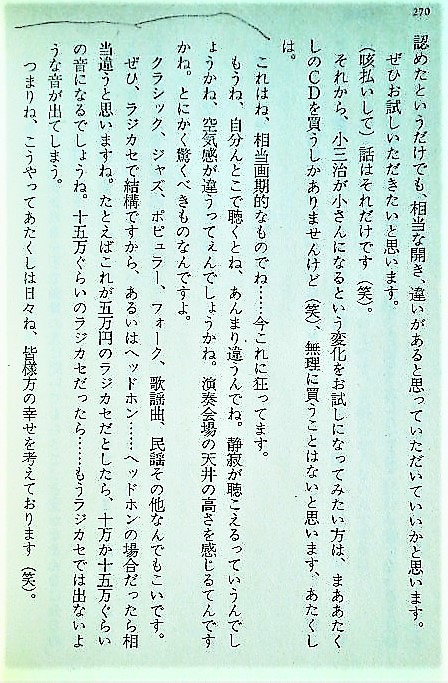 270
認めたというだけでも、相当な開き、違いがあると思っていただいていいかと思います。
ぜひお試しいただきたいと思います。
（咳払いして）話はそれだけです（笑）。
それから、小三治が小さんになるという変化をお試しになってみたい方は、まああたく
しのCDを買うしかありませんけど（笑）、無理に買うことはないと思います、あたくし
は。
これはね、相当画期的なものでね……今これに狂ってます。
もうね、自分んとこで聴くとね、あんまり違うんでね。静寂が聴こえるっていうんでし
ょうかね、空気感が違うってえんでしょうかね。演奏会場の天井の高さを感じるてんです
かね。とにかく驚くべきものなんですよ。
クラシック、ジャズ、ポピュラー、フォーク、歌謡曲、民謡その他なんでもこいです。
ぜひ、ラジカセで結構ですから、あるいはヘッドホン……ヘッドホンの場合だったら相
当違うと思いますね。たとえばこれが五万円のラジカセだとしたら、十万か十五万ぐらい
の音になるでしょうね。十五万ぐらいのラジカセだったら……もうラジカセでは出ないよ
うな音が出てしまう。
つまりね、こうやってあたくしは日々ね、皆様方の幸せを考えております（笑）。